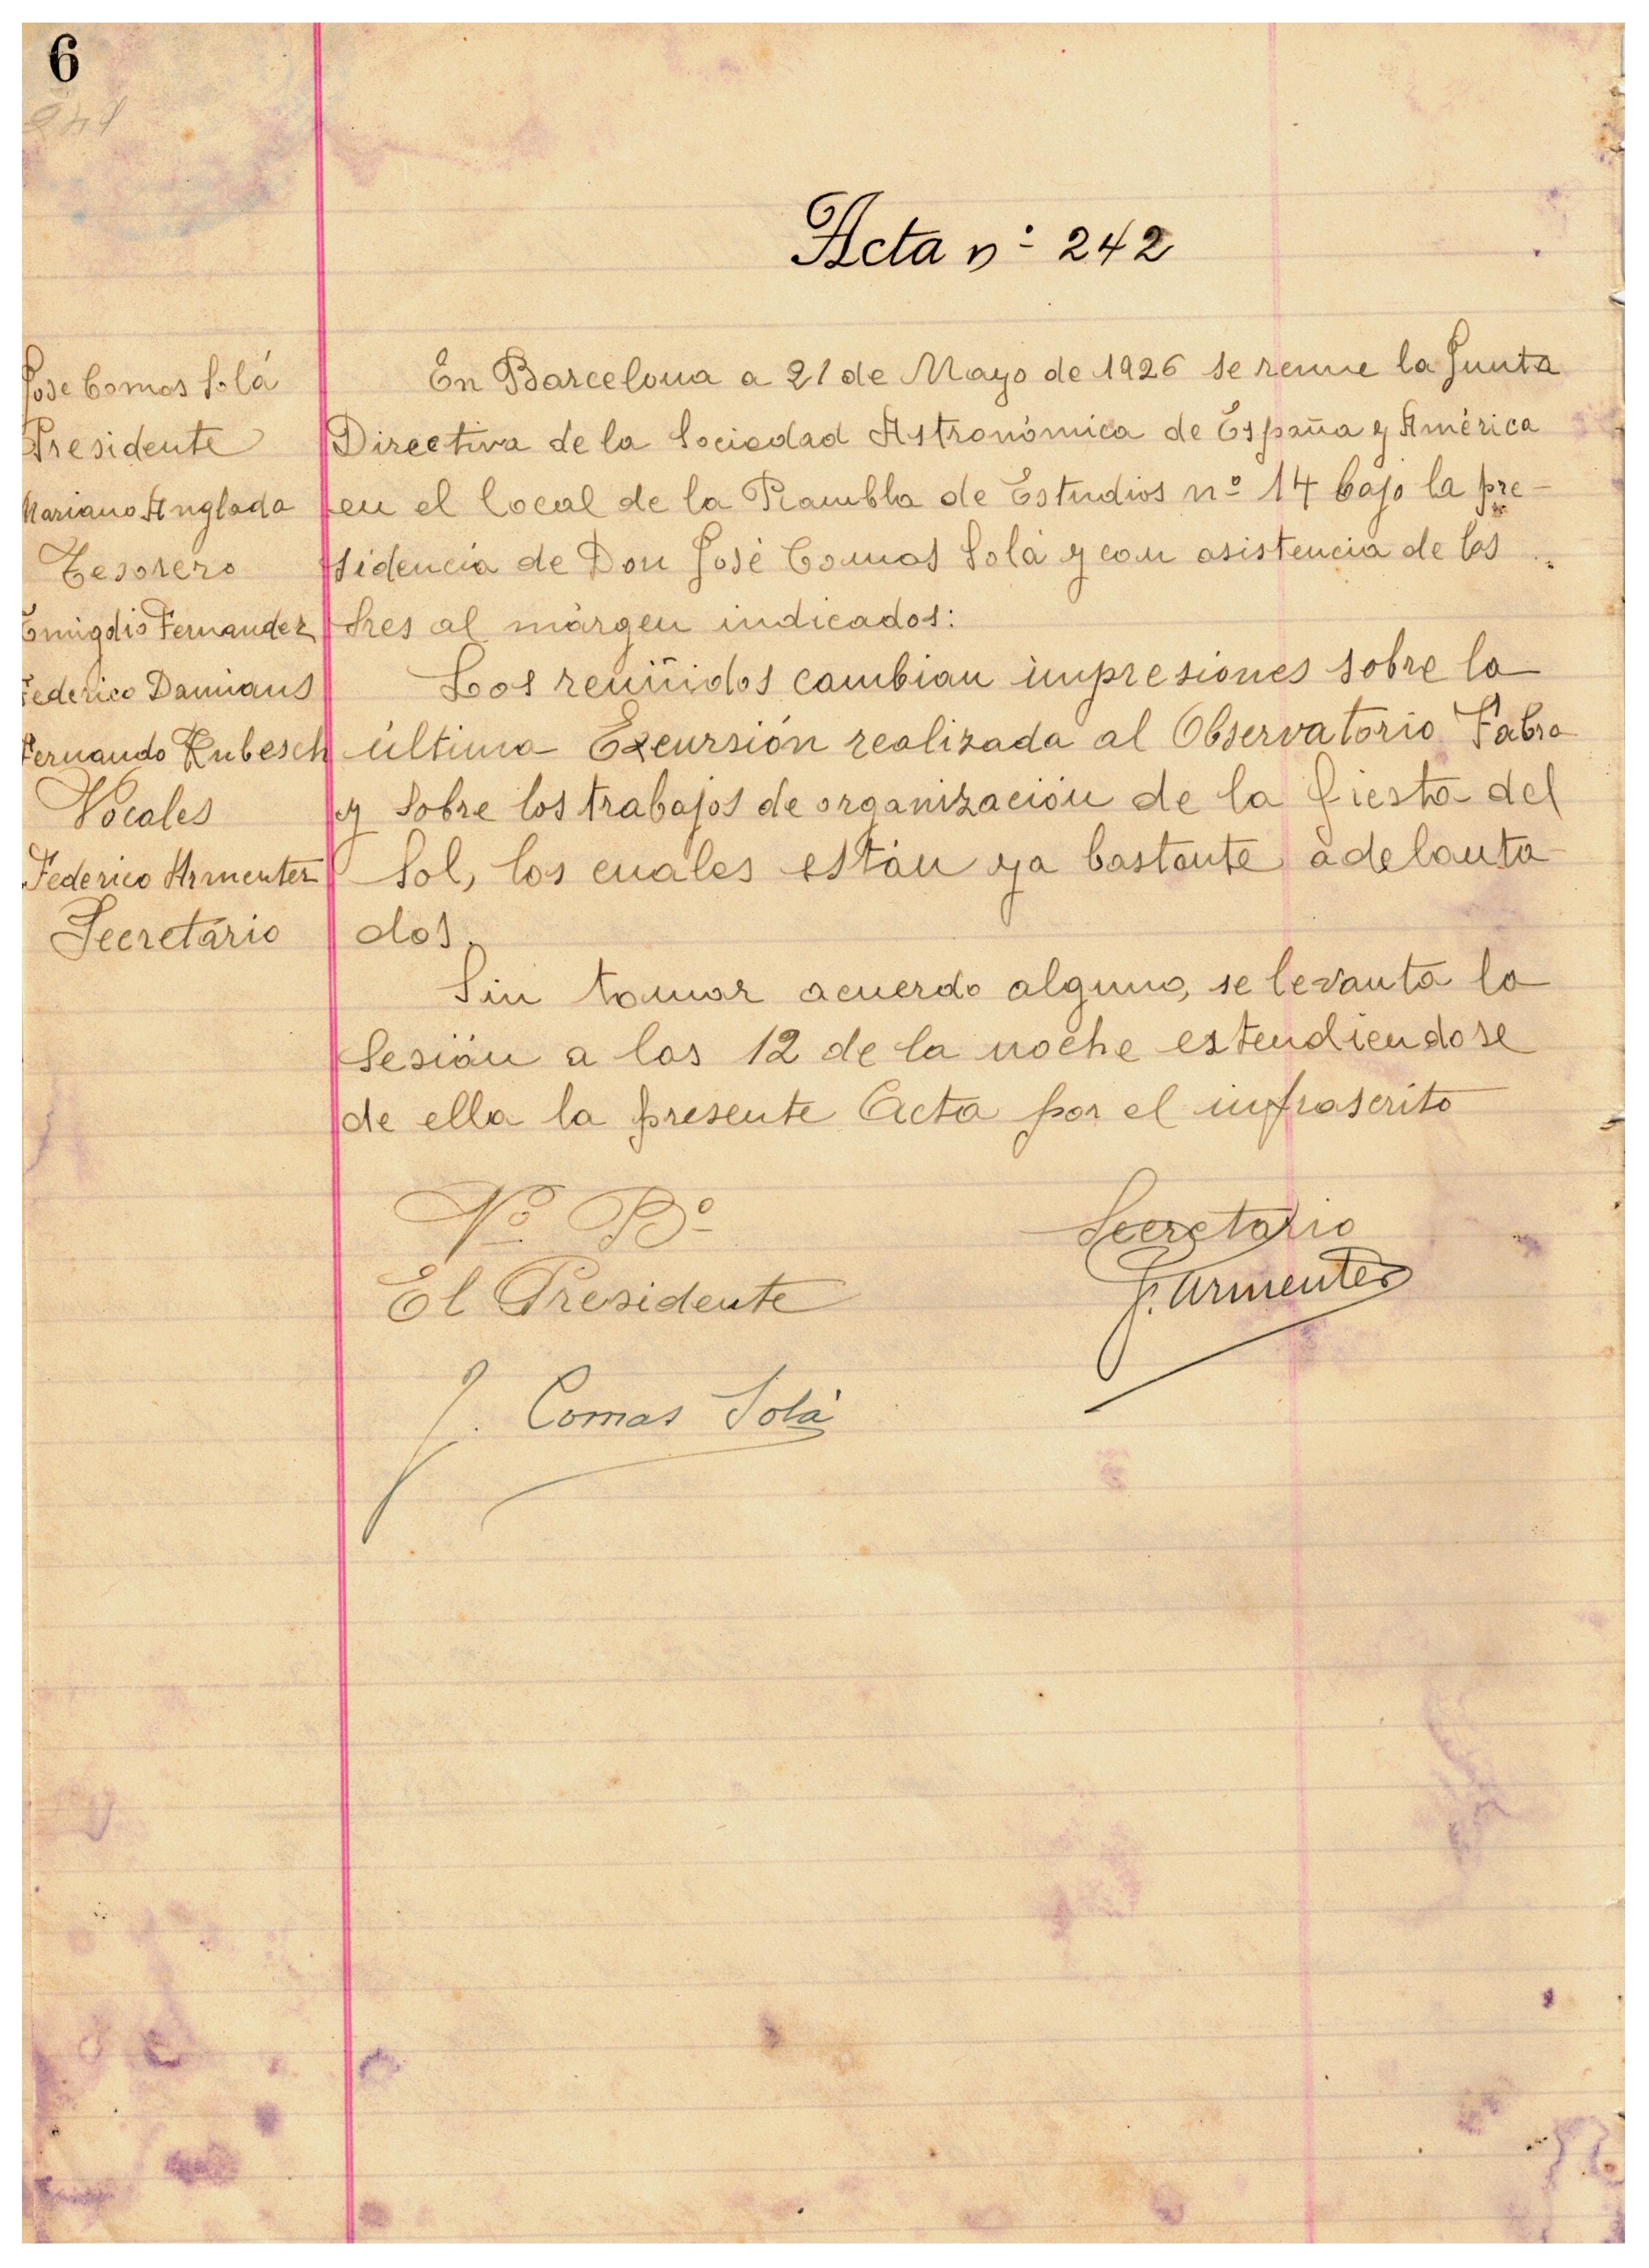 6
241
Acta nº 242
Jose Comas Solá
Presidente
Mariano Anglada
Tesorero
Emigdio Fernandez
Federico Damians
Fernando Rubesch
Vocales
Federico Armenter
Secretario
En Barcelona a 21 de Mayo de 1926 se reune la Junta
Directiva de la Sociedad Astronómica de España y América
en el local de la Rambla de Estudios nº 14 bajo la pre-
sidencia de Don José Comas Solá y con asistencia de los
Sres al márgen indicados:
Los reunidos cambian impresiones sobre la
última Excursión realizada al Observatorio Fabra
y sobre los trabajos de organización de la fiesta del
Sol, los cuales están ya bastante adelanta-
dos.
Sin tomar acuerdo alguno, se levanta la
Sesión a las 12 de la noche estendiendose
de ella la presente Acta por el infrascrito
Secretario
Vº Bº
El Presidente
F. Armenter
J. Comas Solá